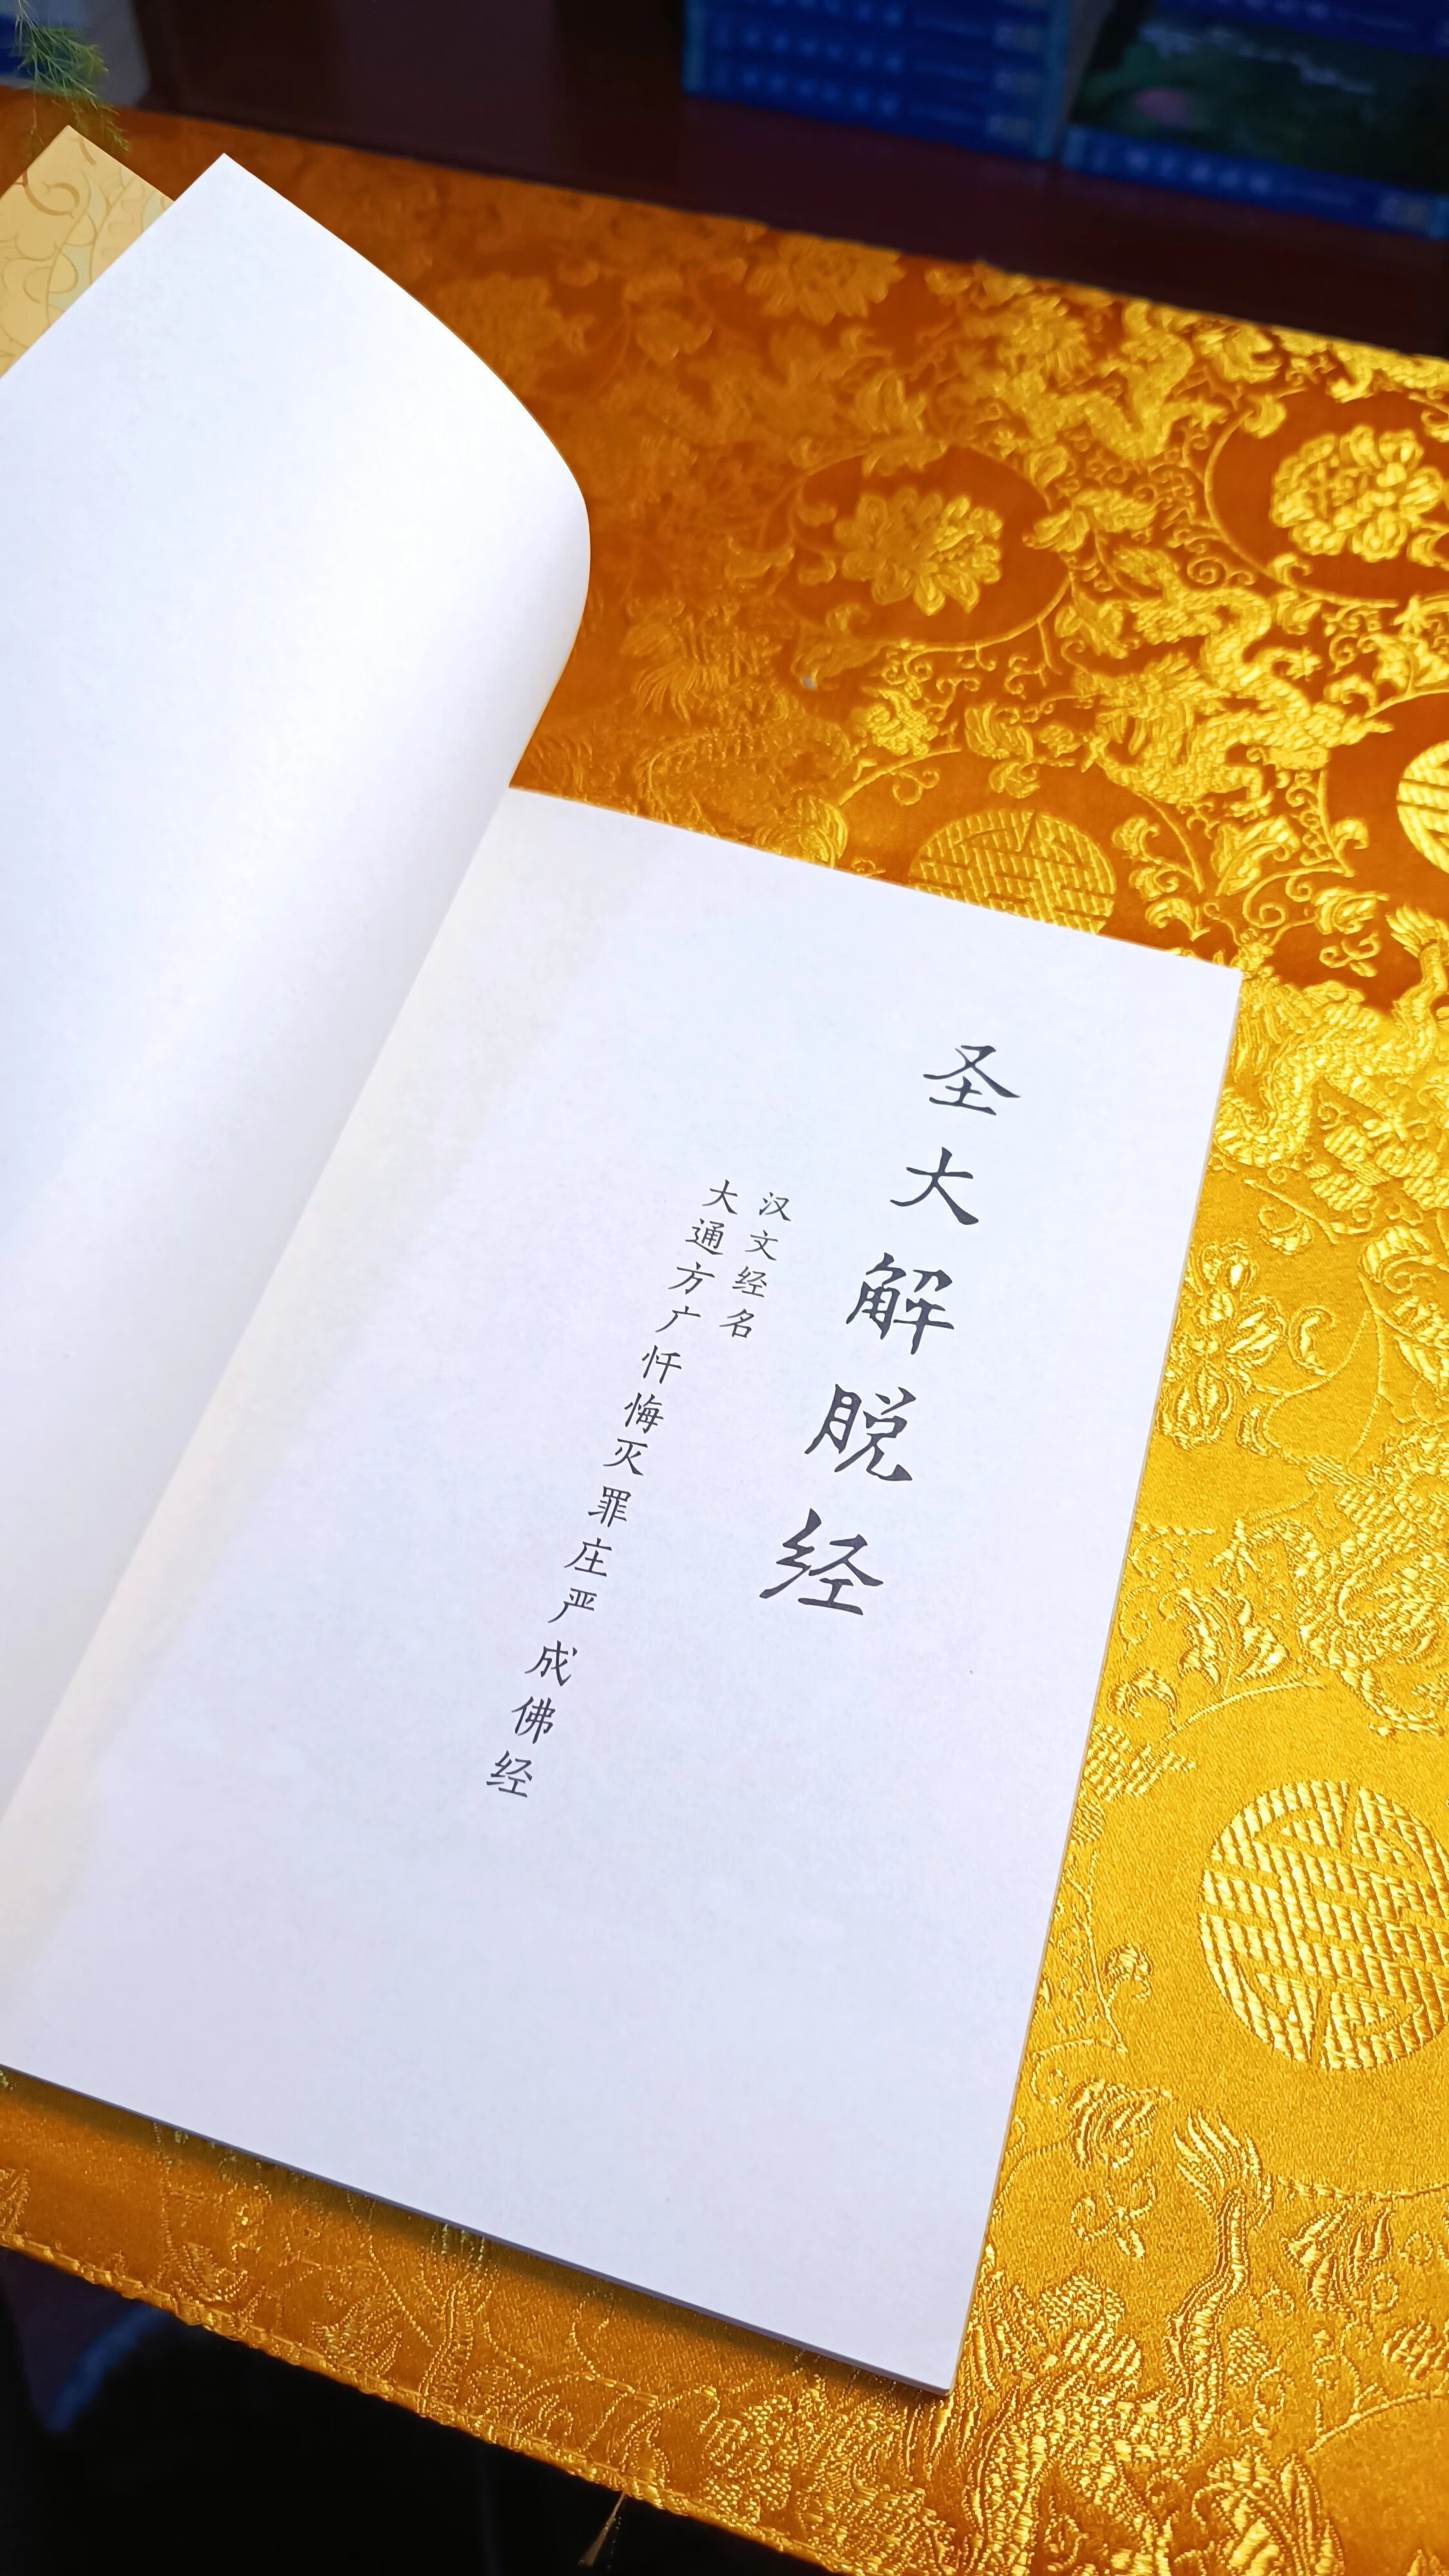 圣大解脱经
汉文经名
大通方广忏悔灭罪庄严成佛经